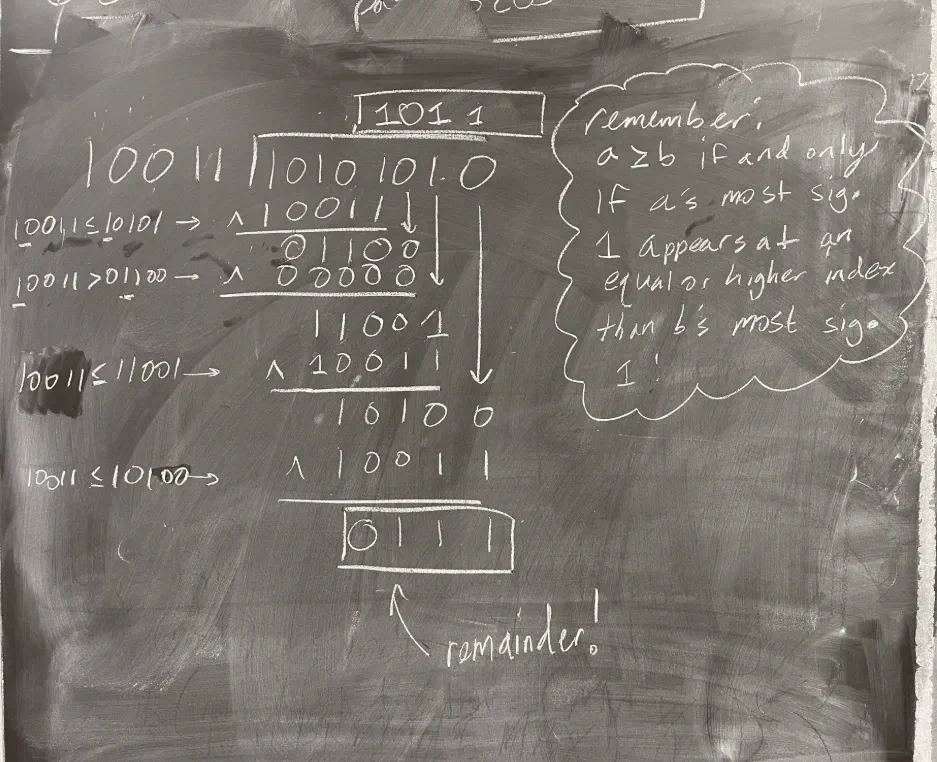 1011
10011 11010 101.0
10011 ≤ 10101 → ^ 10011
01100
10011 > 01100 → ^ 00000
11001
10011 ≤ 11001 → ^ 10011
10100
10011 ≤ 10100 → ^ 10011
0111
remainder!
remember:
a ≥ b if and only
if a's most sig.
1 appears at an
equal or higher index
than b's most sig.
1!